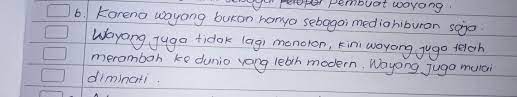 pembuat wayang.
6. Karena wayang bukan hanya sebagai media hiburan saja.
Wayang juga tidak lagi monoton, kini wayang juga telah
merambah ke dunia yang lebih modern. Wayang juga mulai
diminati.